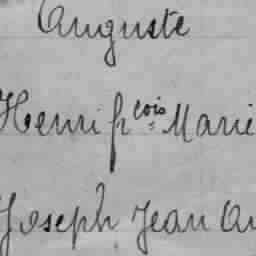 Auguste
Henri fr cois Marie
Joseph Jean Au